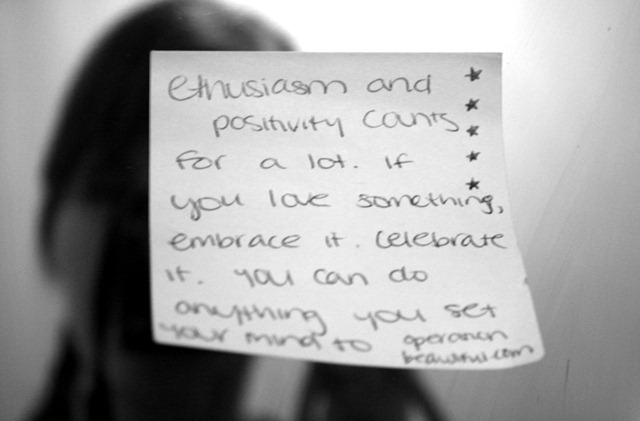 ethusiasm and
positivity counts
for a lot. If
you love something,
embrace it. celebrate
it. you can do
anything you set
your mind to
operation
beautiful.com